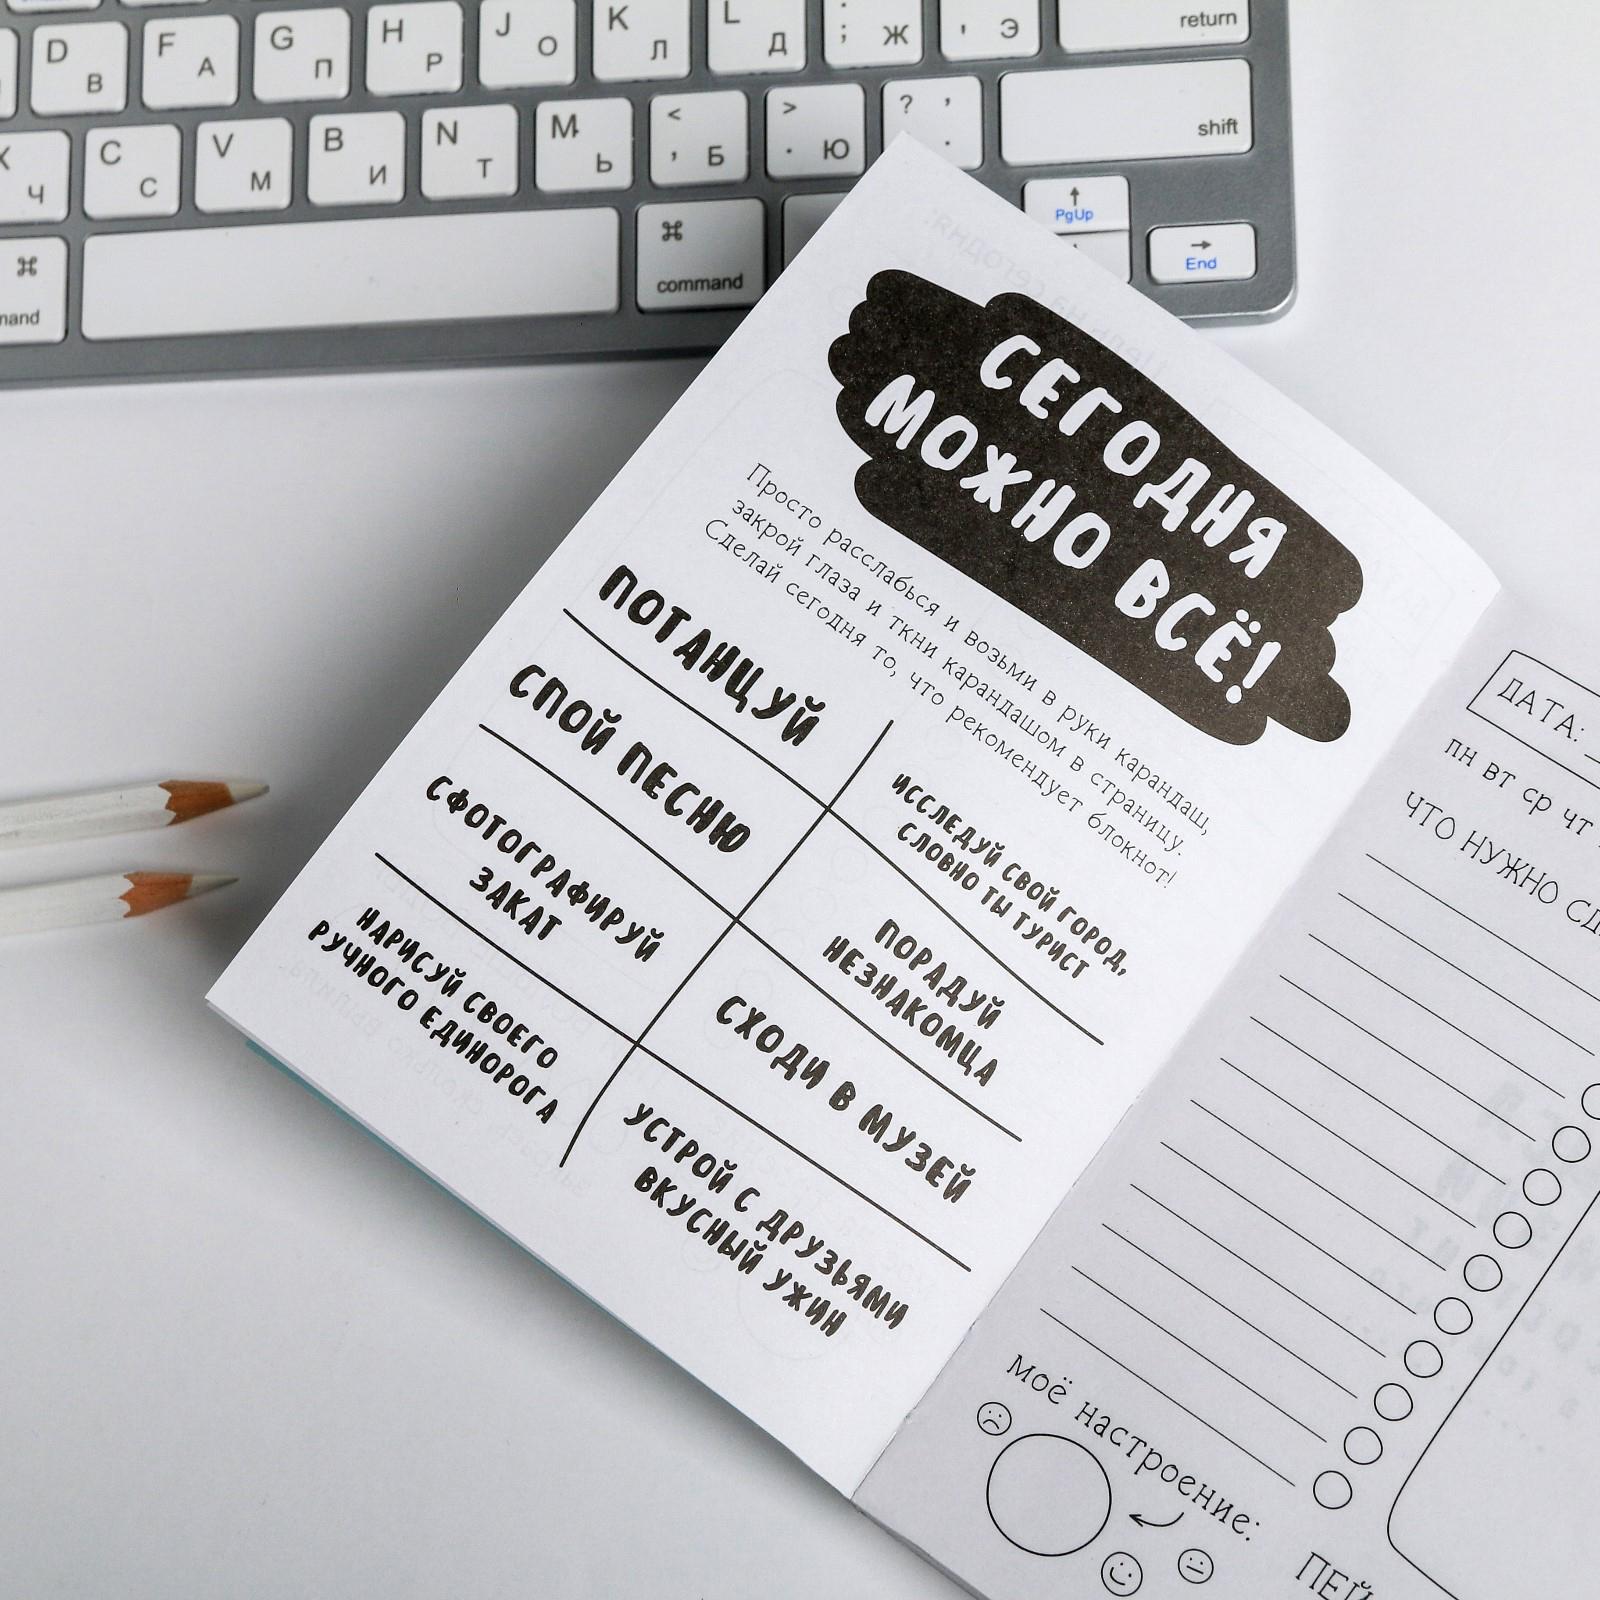 D В
F А
G П
H Р
J О
K Л
L Д
; : Ж
, Э
return
Ч
C С
V М
B И
N Т
M Ь
< , Б
> . Ю
? , .
shift
⌘
⌘
command
PgUp
End
СЕГОДНЯ
МОЖНО ВСЁ!
Просто расслабься и возьми в руки карандаш,
закрой глаза и ткни карандашом в страницу.
Сделай сегодня то, что рекомендует блокнот!
ПОТАНЦУЙ
ИССЛЕДУЙ СВОЙ ГОРОД,
СЛОВНО ТЫ ТУРИСТ
СПОЙ ПЕСНЮ
ПОРАДУЙ
НЕЗНАКОМЦА
СФОТОГРАФИРУЙ
ЗАКАТ
СХОДИ В МУЗЕЙ
НАРИСУЙ СВОЕГО
РУЧНОГО ЕДИНОРОГА
УСТРОЙ С ДРУЗЬЯМИ
ВКУСНЫЙ УЖИН
ДАТА:
ПН ВТ СР ЧТ
ЧТО НУЖНО
МОЁ настроение: